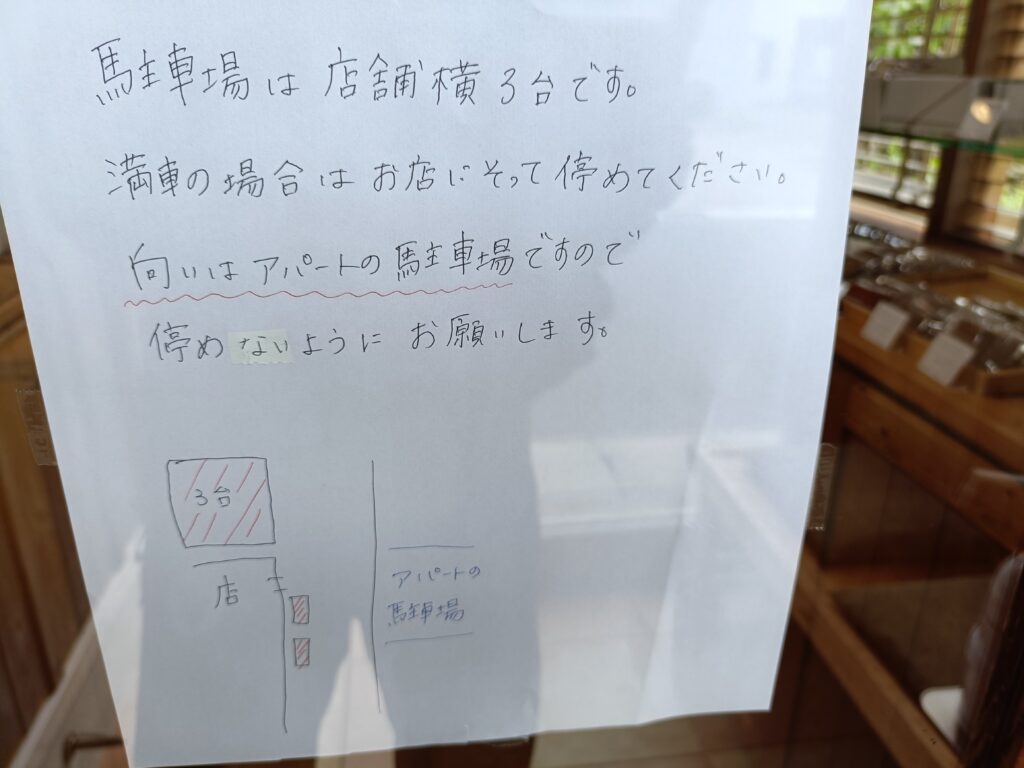 駐車場は店舗横3台です。
満車の場合はお店にそって停めてください。
向いはアパートの駐車場ですので
停めないようにお願いします。
3台
店
アパートの
駐車場